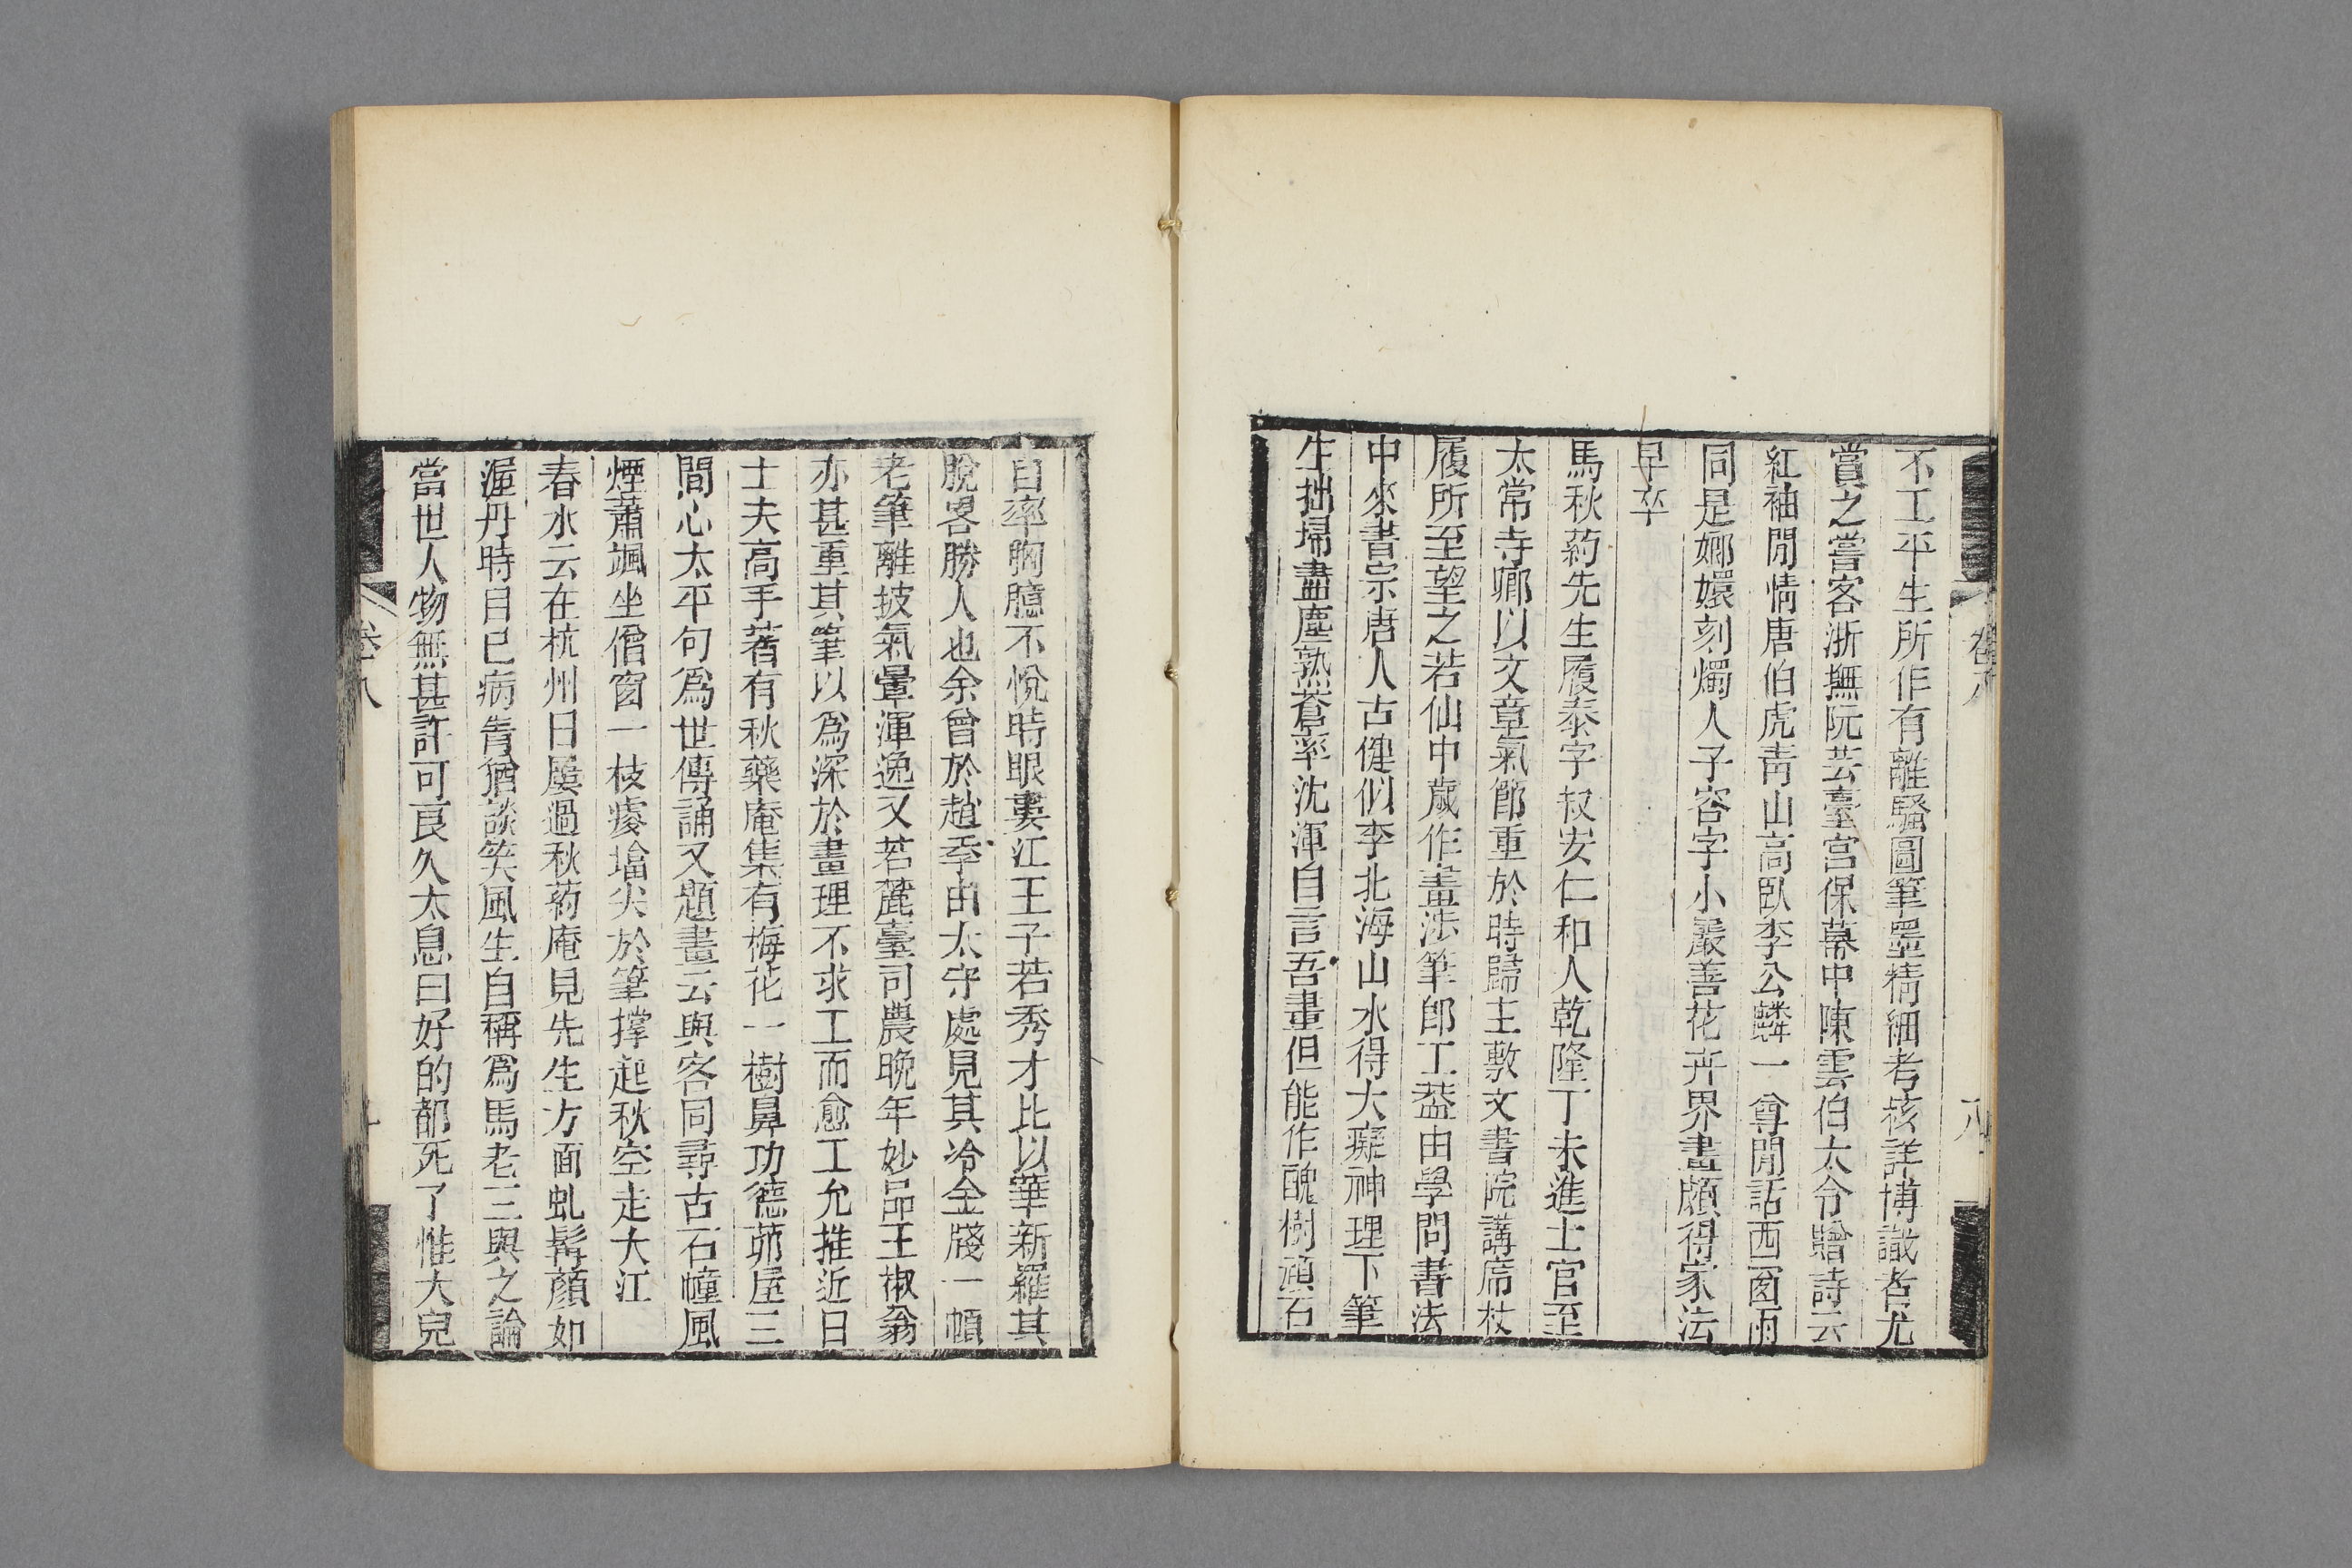 不工平生所作有離騷圖筆墨精細考核詳博識者尤
賞之嘗客浙撫阮芸臺宮保幕中陳雲伯太令贈詩云
紅袖閒情唐伯虎靑山高臥李公麟一尊閒話西窗雨
同是嫏嬛刻燭人子容字小巖善花卉界畫頗得家法
早卒
馬秋葯先生履泰字叔安仁和人乾隆丁未進士官至
太常寺卿以文章氣節重於時歸主敷文書院講席杖
履所至望之若仙中歲作畫涉筆卽工葢由學問書法
中來書宗唐人古健似李北海山水得大癡神理下筆
生拙掃盡塵熟蒼率沈渾自言吾畫但能作醜樹頑石
自率胸臆不悅時眼婁江王子若秀才比以華新羅其
脫畧勝人也余曾於趙季由太守處見其冷金牋一幀
老筆離披氣暈渾逸又若麓臺司農晚年妙品王椒翁
亦甚重其筆以爲深於畫理不求工而愈工允推近日
士夫高手著有秋藥庵集有梅花一樹鼻功德茆屋三
間心太平句爲世傳誦又題畫云與客同尋古石幢風
煙蕭颯坐僧窗一枝瘦墖尖於筆撐起秋空走大江
春水云在杭州日屢過秋葯庵見先生方面虬髯顏如
渥丹時目已病眚猶談笑風生自稱爲馬老三與之論
當世人物無甚許可良久太息曰好的都死了惟大兒
卷八
八
卷八